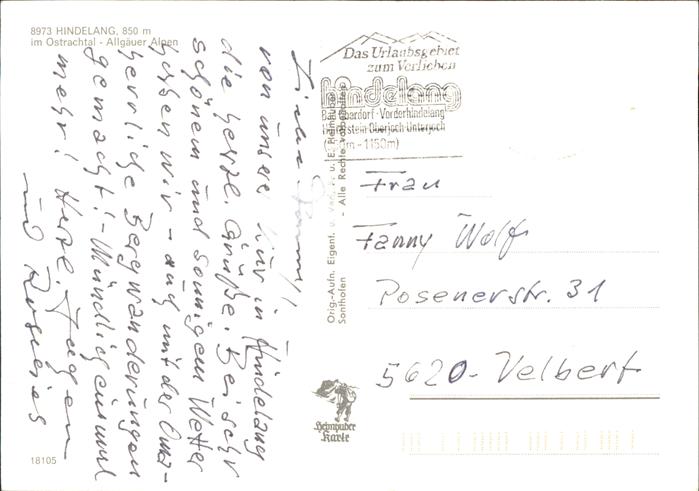 8973 HINDELANG, 850 m
im Ostrachtal - Allgäuer Alpen
Liebe Fanny!
von unserer Kur in Hindelang
die herzl. Grüße. Bei sehr
schönem und sonnigem Wetter
haben wir - auch mit der Oma -
herrliche Bergwanderungen
gemacht! - Mündlich einmal
mehr! Herzl. Jürgen
und Roswies
Das Urlaubsgebiet
zum Verlieben
hindelang
Bad Oberdorf · Vorderhindelang
Oberjoch Unterjoch
- 1150m)
Orig.-Aufn. Eigent. u. Verl. u. E. Heimhuber
Sonthofen - Alle Rechte vorbehalten
Frau
Fanny Wolf
Posenerstr. 31
5620 - Velbert
Heimhuber
Karte
18105